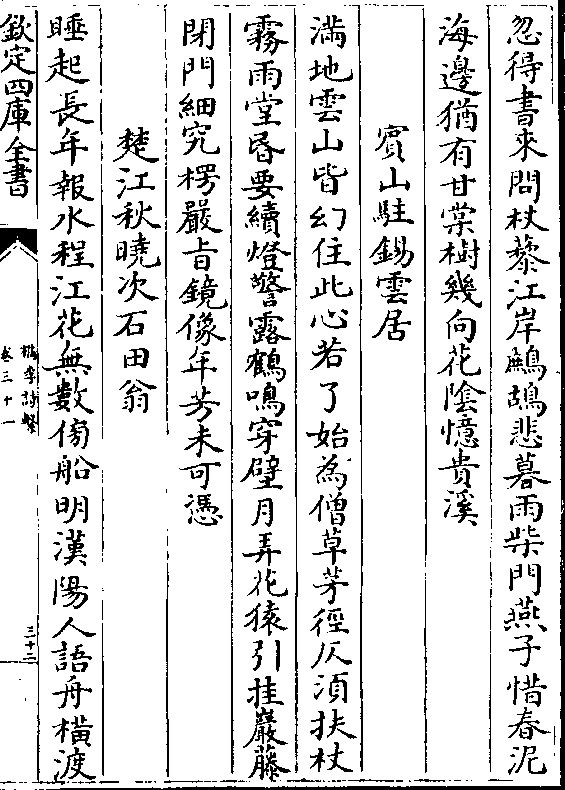 忽得書來問杖藜江岸鷓鴣悲暮雨柴門燕子惜春泥
海邊猶有甘棠樹幾向花陰憶貴溪
賓山駐錫雲居
滿地雲山皆幻住此心若了始為僧草芽徑仄須扶杖
霧雨堂昏要續燈警露鶴鳴穿壁月弄花猿引挂巖藤
閉門細究楞嚴旨鏡像年芳未可憑
楚江秋曉次石田翁
睡起長年報水程江花無數傍船明漢陽人語舟橫渡
欽定四庫全書
檇李詩繫
卷三十一
三十二